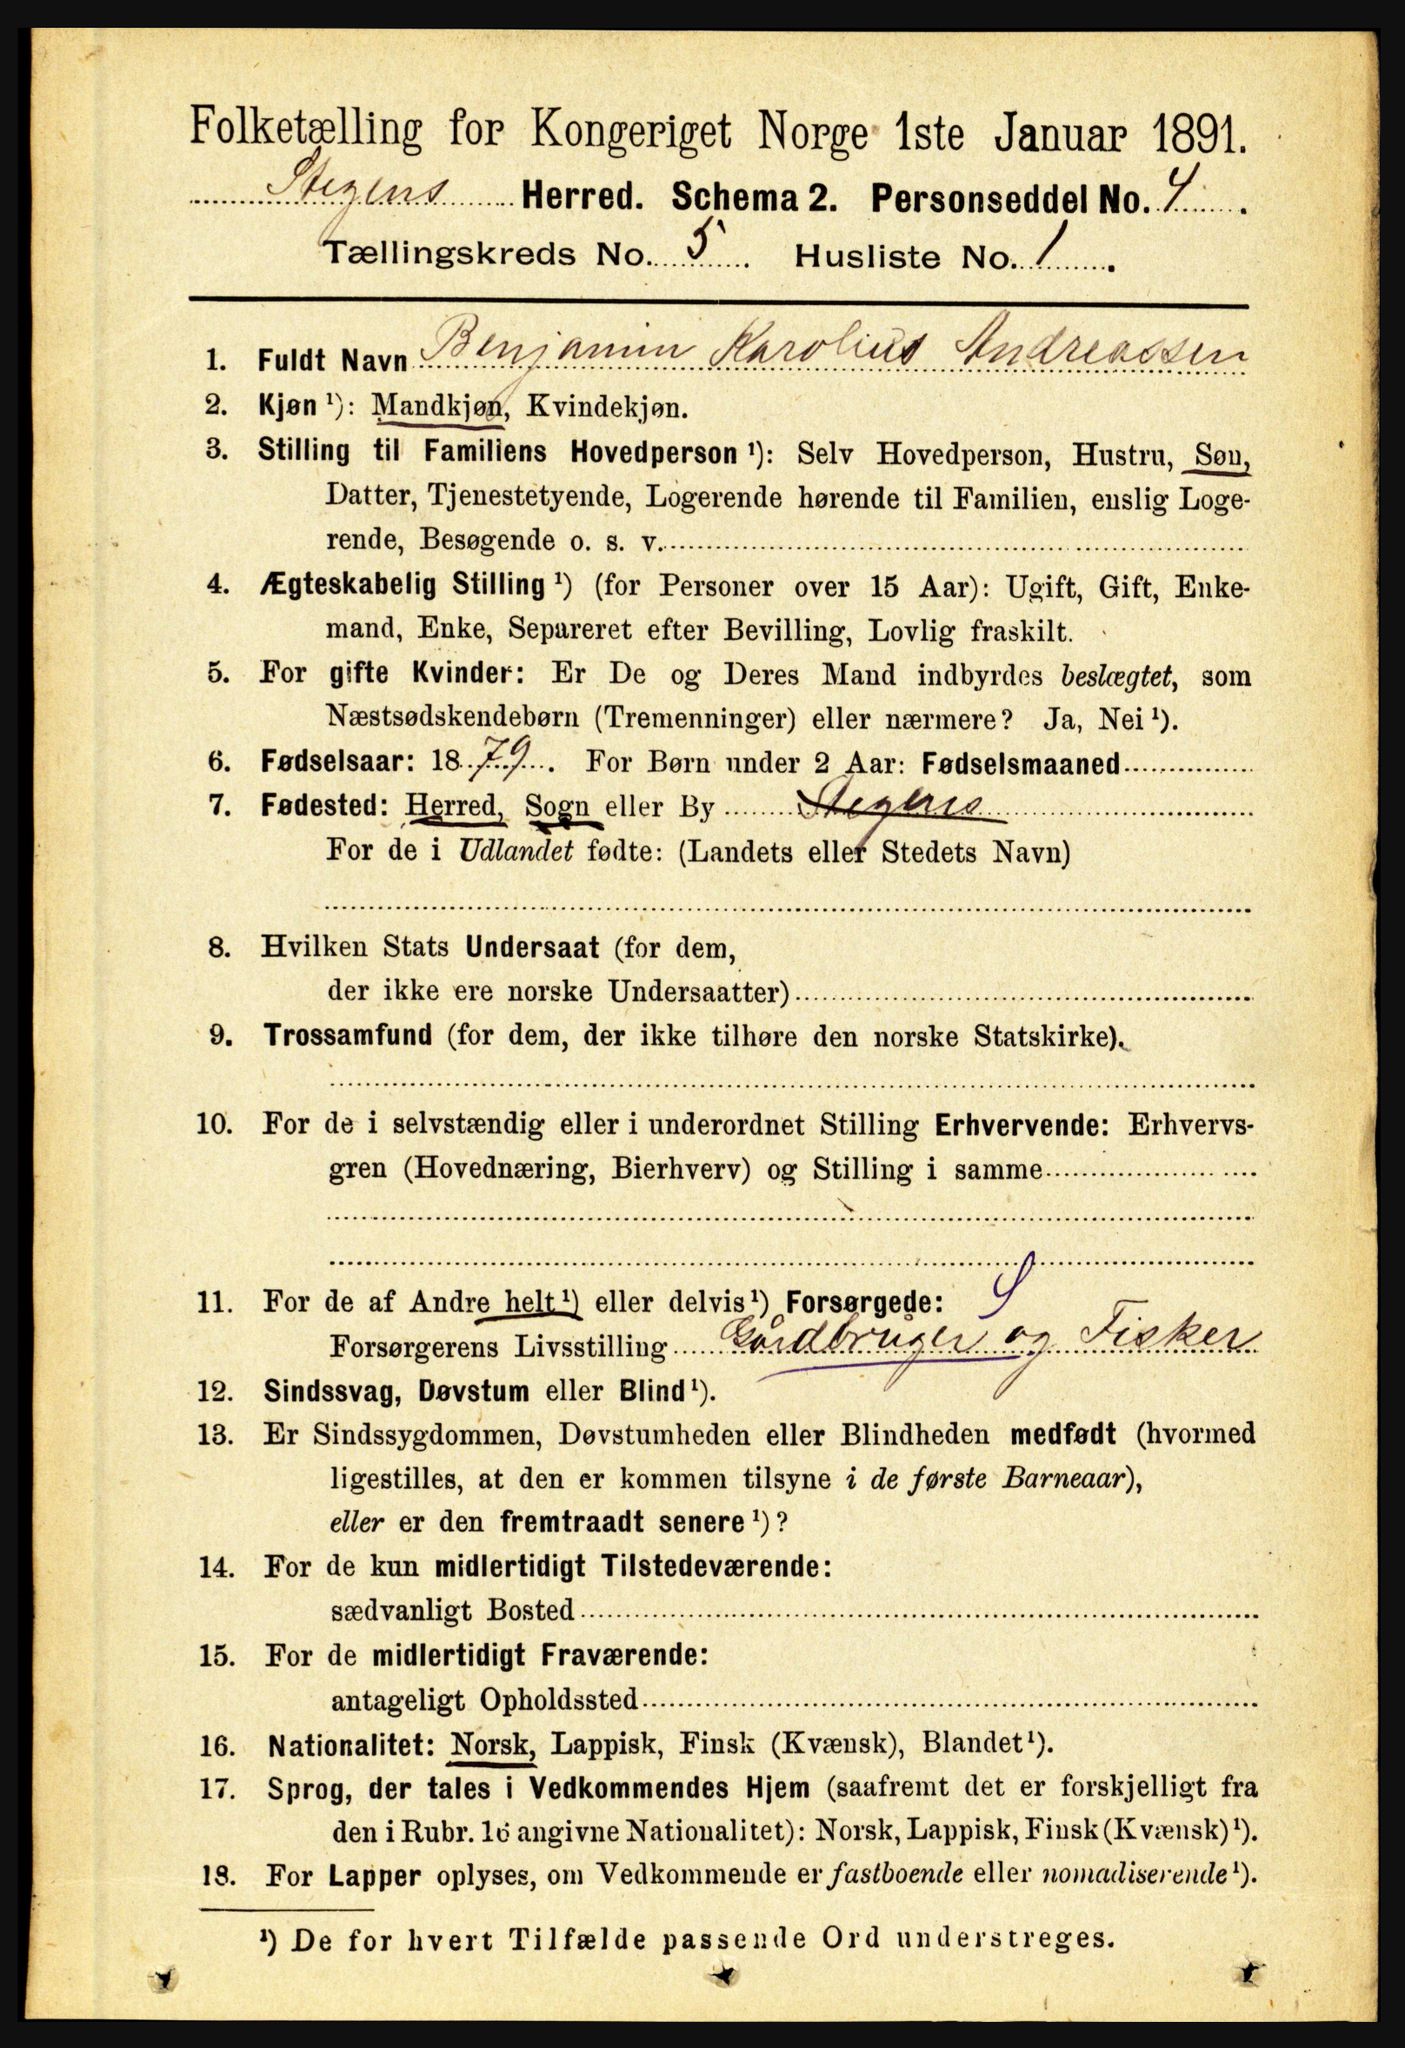 Folketælling for Kongeriget Norge 1ste Januar 1891.
Stegens Herred. Schema 2. Personseddel No. 4.
Tællingskreds No. 5. Husliste No. 1.
1. Fuldt Navn Benjamin Karolius Andreassen
2. Kjøn ¹): Mandkjøn, Kvindekjøn.
3. Stilling til Familiens Hovedperson ¹): Selv Hovedperson, Hustru, Søn,
Datter, Tjenestetyende, Logerende hørende til Familien, enslig Loge-
rende, Besøgende o. s. v.
4. Ægteskabelig Stilling ¹) (for Personer over 15 Aar): Ugift, Gift, Enke-
mand, Enke, Separeret efter Bevilling, Lovlig fraskilt.
5. For gifte Kvinder: Er De og Deres Mand indbyrdes beslægtet, som
Næstsødskendebørn (Tremenninger) eller nærmere? Ja, Nei ¹).
6. Fødselsaar: 1879. For Børn under 2 Aar: Fødselsmaaned
7. Fødested: Herred, Sogn eller By Stegens
For de i Udlandet fødte: (Landets eller Stedets Navn)
8. Hvilken Stats Undersaat (for dem,
der ikke ere norske Undersaatter)
9. Trossamfund (for dem, der ikke tilhøre den norske Statskirke).
10. For de i selvstændig eller i underordnet Stilling Erhvervende: Erhvervs-
gren (Hovednæring, Bierhverv) og Stilling i samme
11. For de af Andre helt ¹) eller delvis ¹) Forsørgede: S
Forsørgerens Livsstilling Gårdbruger og Fisker
12. Sindssvag, Døvstum eller Blind ¹).
13. Er Sindssygdommen, Døvstumheden eller Blindheden medfødt (hvormed
ligestilles, at den er kommen tilsyne i de første Barneaar),
eller er den fremtraadt senere ¹)?
14. For de kun midlertidigt Tilstedeværende:
sædvanligt Bosted
15. For de midlertidigt Fraværende:
antageligt Opholdssted
16. Nationalitet: Norsk, Lappisk, Finsk (Kvænsk), Blandet ¹).
17. Sprog, der tales i Vedkommendes Hjem (saafremt det er forskjelligt fra
den i Rubr. 16 angivne Nationalitet): Norsk, Lappisk, Finsk (Kvænsk) ¹).
18. For Lapper oplyses, om Vedkommende er fastboende eller nomadiserende ¹).
¹) De for hvert Tilfælde passende Ord understreges.